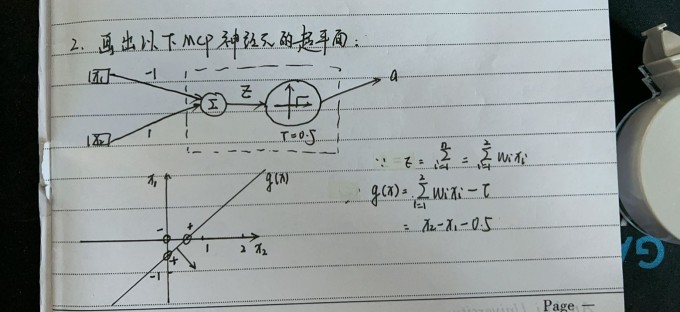 2. 画出以下MCP神经元的超平面:
x1
-1
Σ
Z
a
x2
1
T=0.5
∵ z = Σ i=1 n = Σ i=1 2 wixi
g(x) = Σ i=1 2 wixi - τ
= x2 - x1 - 0.5
x1
g(x)
-
+
1
2
x2
+
-1
Page